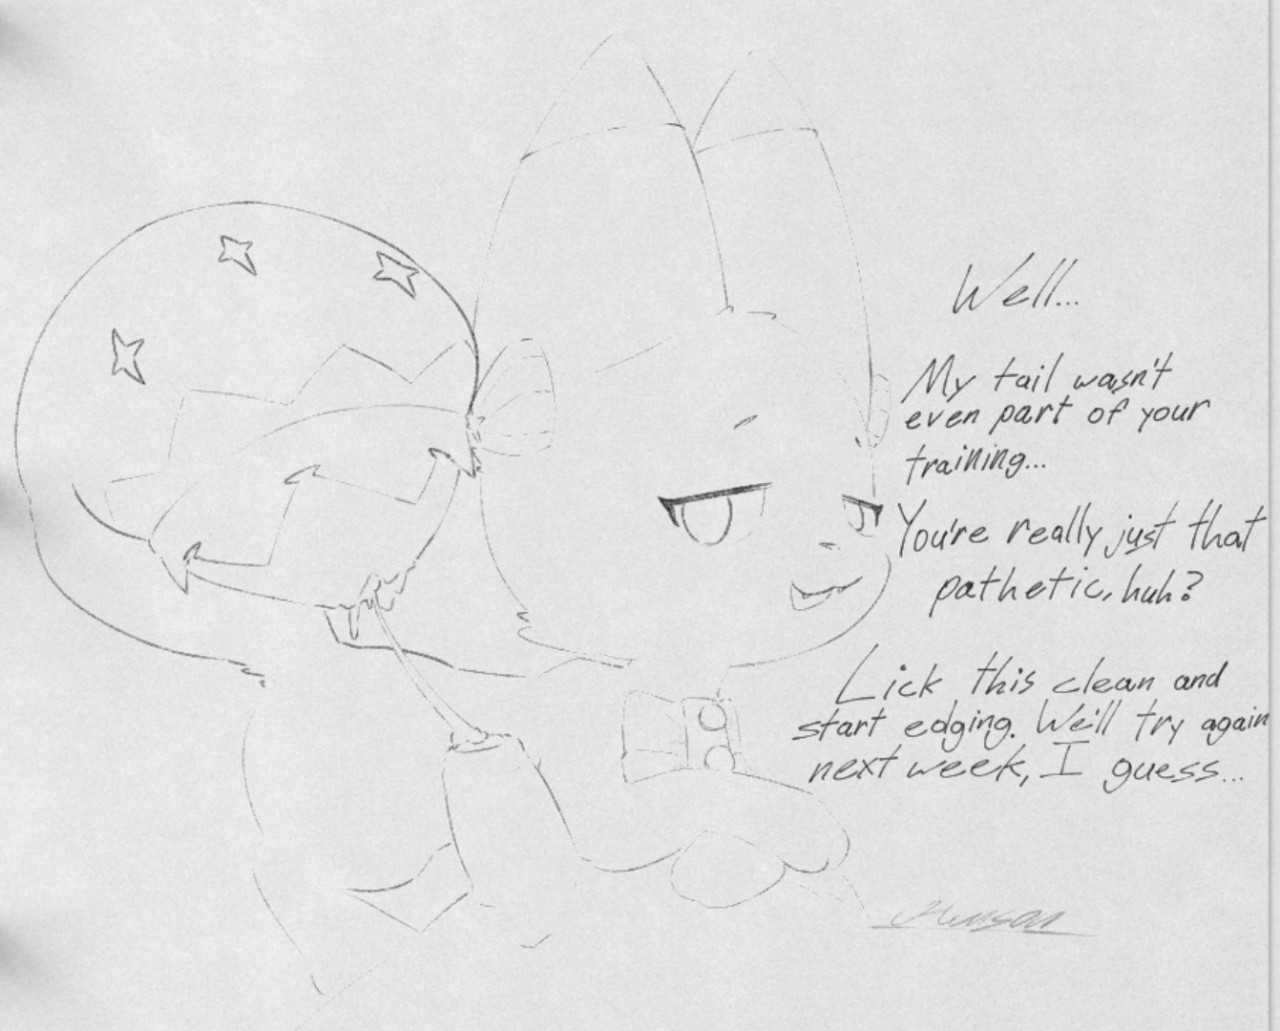 Well...
My tail wasn't
even part of your
training...
You're really just that
pathetic, huh?
Lick this clean and
start edging. We'll try again
next week, I guess...